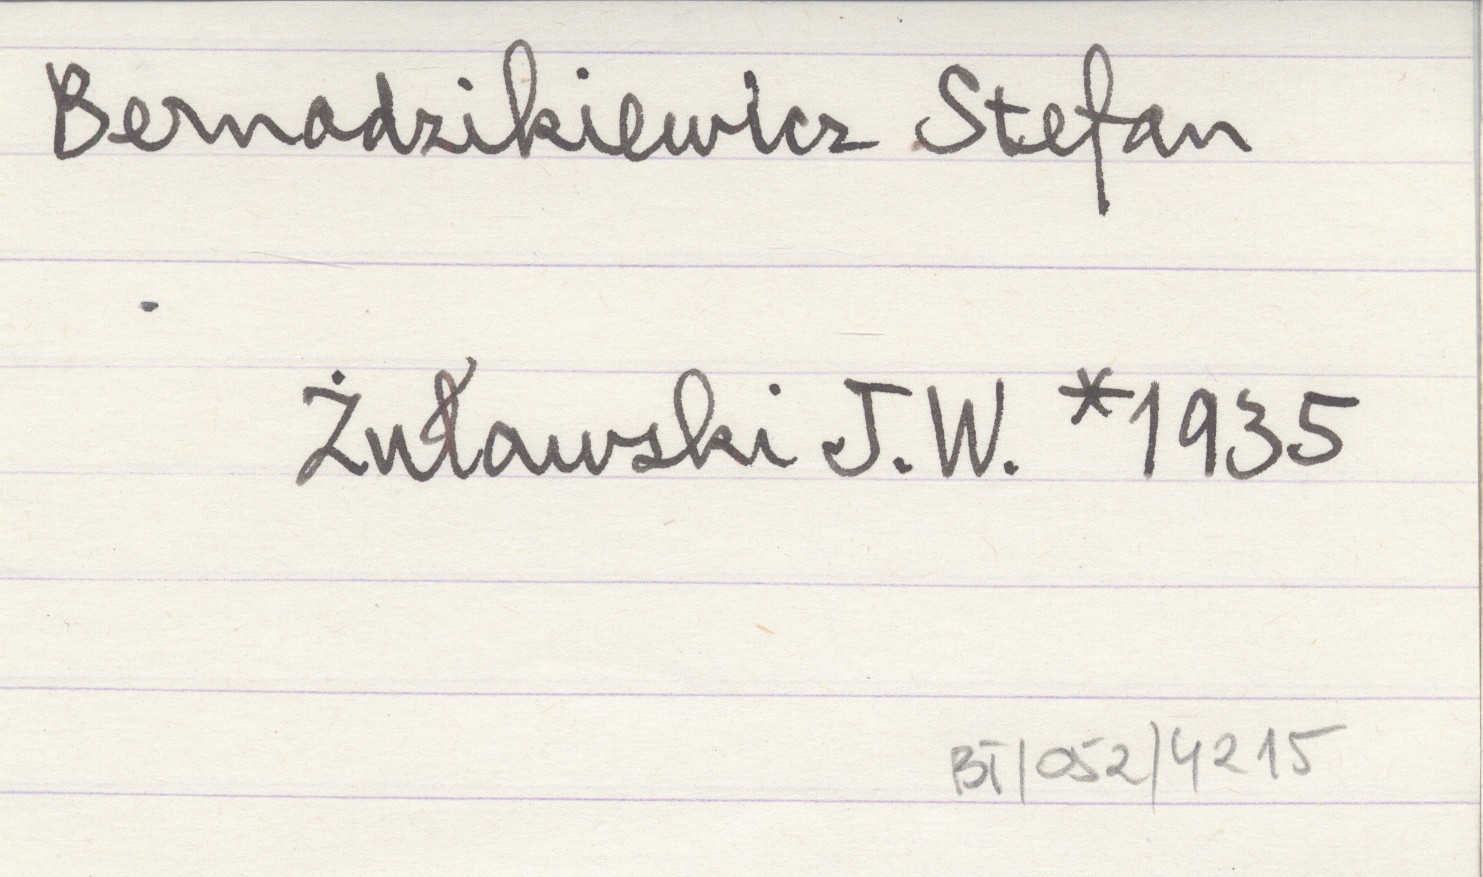 Bernadzikiewicz Stefan
Żuławski J.W. *1935
BT/052/4215